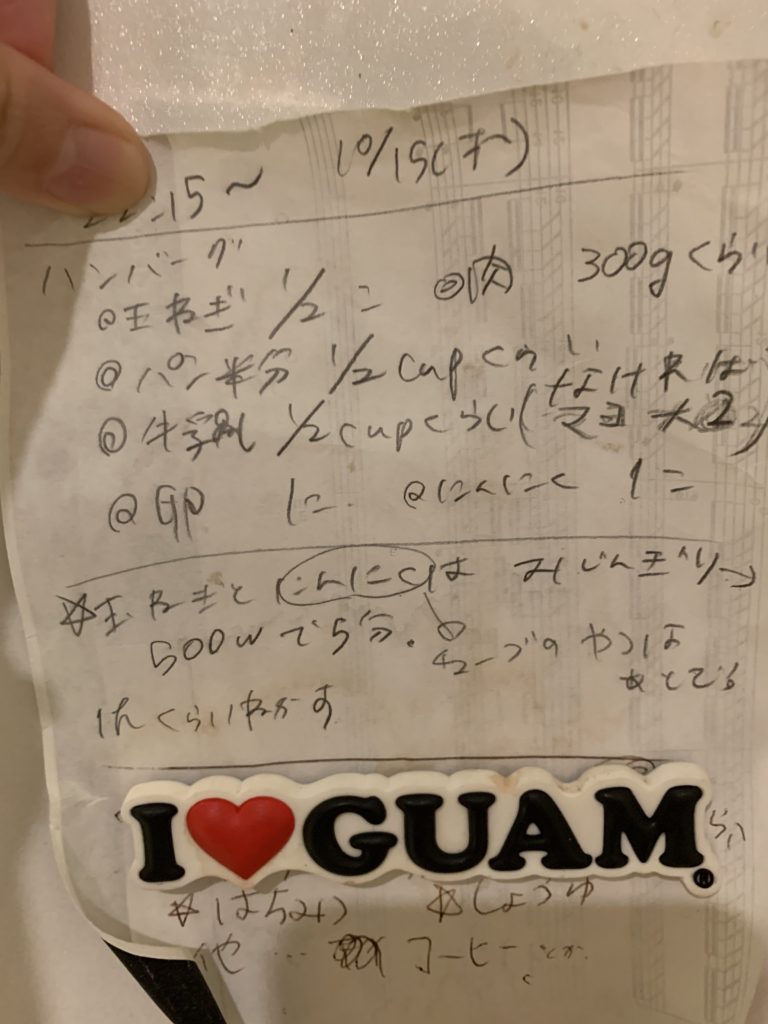 :15〜 10/15(
ハンバーグ
@玉ねぎ 1/2 こ @肉 300gくらい
@パン半分 1/2 cupくらい
なければ
@牛乳 1/2cupくらい(マヨ大2)
@卵 1こ. @にんにく 1こ
☆玉ねぎとにんにくは みじんぎり→
500Wで5分. チューブのやつは
あとでも
1hくらいねかす
I ❤ GUAM®
らい
☆はちみつ ☆しょうゆ
他… コーヒーとか